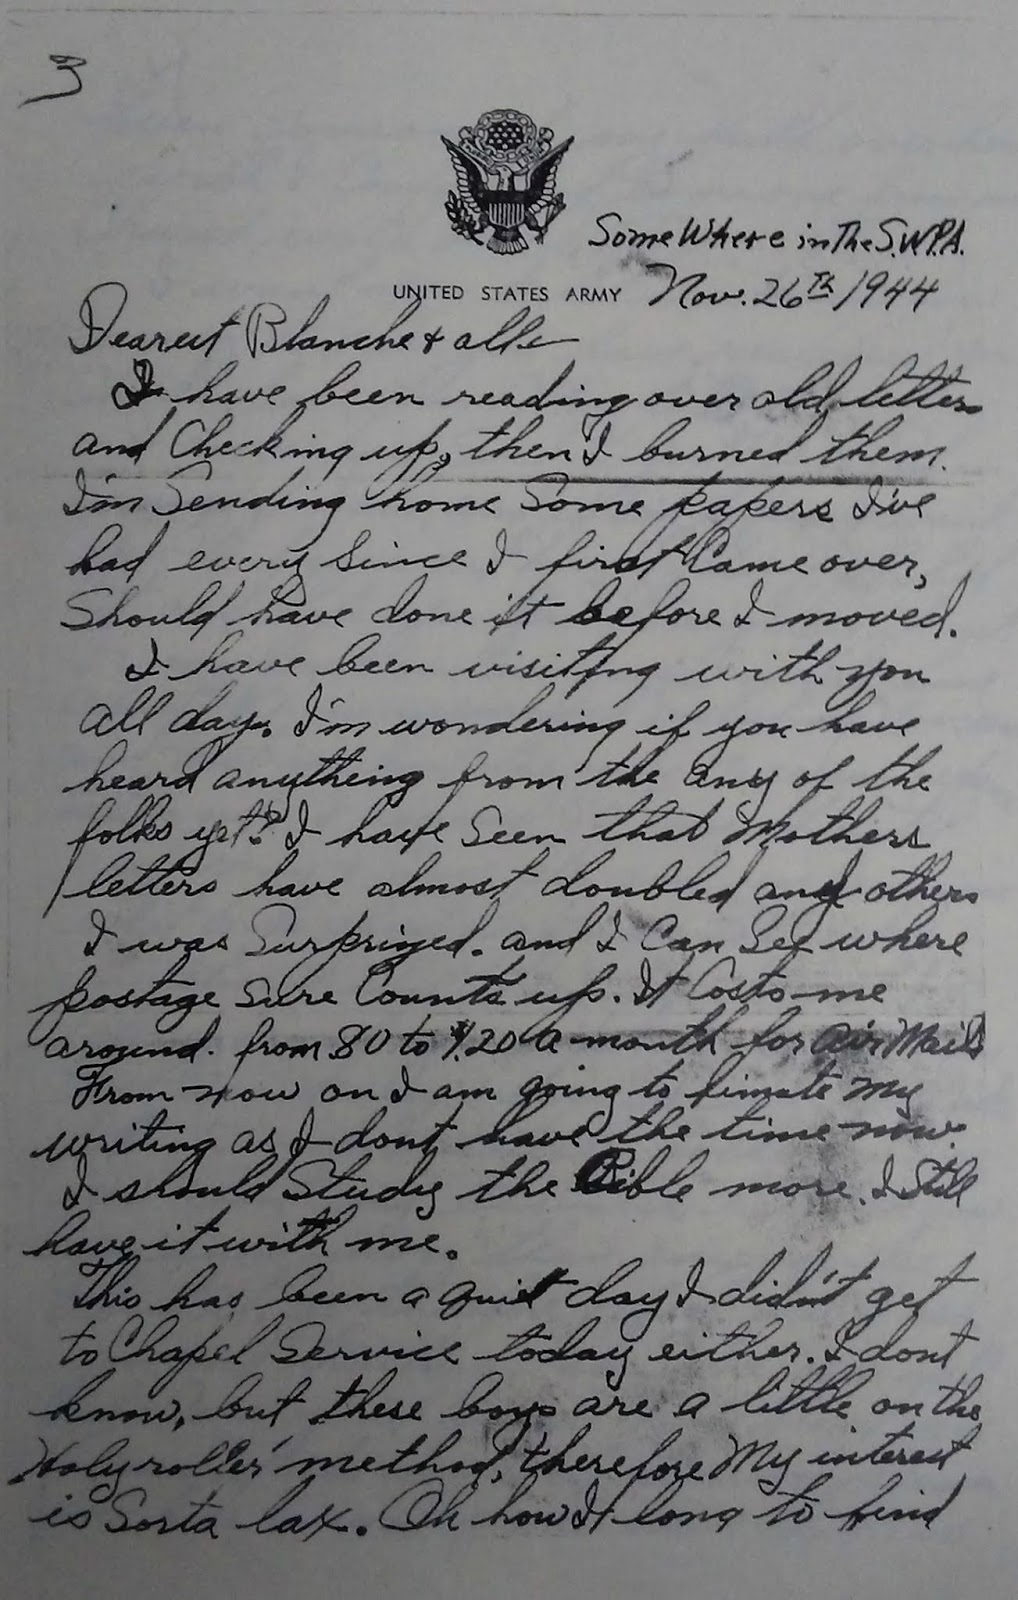 3
Somewhere in the S.W.P.A.
UNITED STATES ARMY Nov. 26th 1944
Dearest Blanche & all
I have been reading over old letters
and Checking up, then I burned them.
I'm Sending home Some papers I've
had every Since I first Came over,
Should have done it before I moved.
I have been visiting with you
all day. I'm wondering if you have
heard anything from the any of the
folks yet? I have Seen that Mothers
letters have almost doubled any others
I was Surprized. and I Can See where
postage Sure Counts up. It Costs me
around. from .80 to $1.20 a month for air Mail
From now on I am going to limate my
writing as I dont have the time now.
I should Study the Bible more. I Still
have it with me.
This has been a quiet day I didn't get
to Chapel Service today either. I dont
know, but these boys are a little on the
Holy roller' method, therefore My interest
is Sorta lax. Oh how I long to find